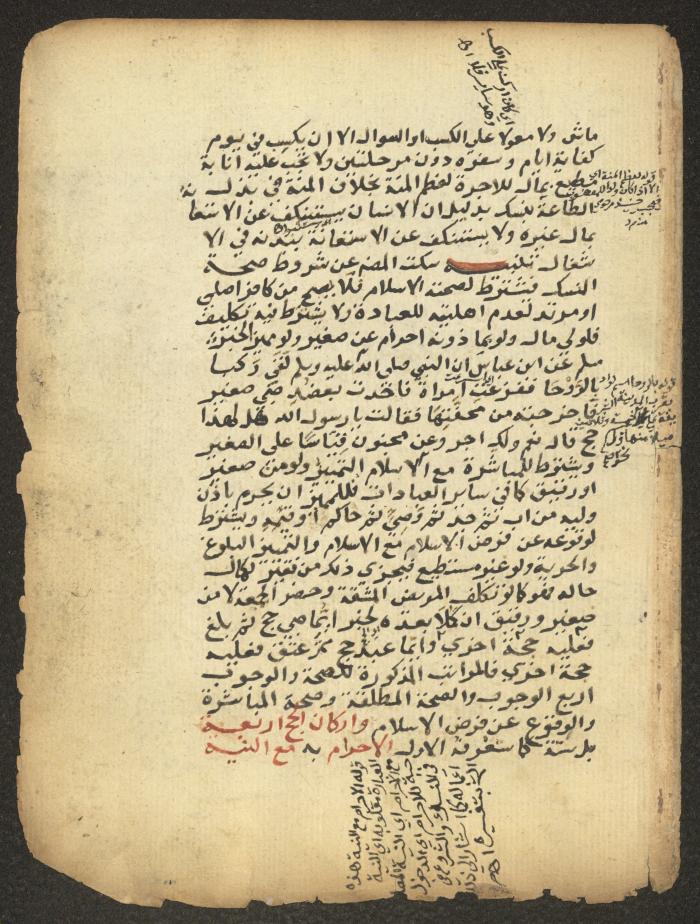 ماش ولا معولا على الكسب او السوال الا ان يكسب في يوم
كفاية ايام وسفره دون مرحلتين ولا تجب عليه انابة
مطيع بمال للاجرة لعظم المنة بخلاف المنة في بذل
الطاعة بنسك بدليل ان الانسان يستنكف عن الاستعا
بمال غيره ولا يستنكف عن الاستعانة ببدنه في الا
شغال تنبيه سكت المص عن شروط صحة
النسك فيشترط لصحته الاسلام فلا يصح من كافر اصلي
او مرتد لعدم اهليته للعبادة ولا يشترط فيه تكليف
فلولي مال ولو بماذونه احرام عن صغير ولو مميزا لخبر
مسلم عن ابن عباس ان النبي صلى الله عليه وسلم لقي ركبا
بالروحا ففزعت امراة فاخذت بعضد صبي صغير
فاخرجته من محفتها فقالت يا رسول الله هل لهذا
حج قال نعم ولك اجر وعن مجنون قياسا على الصغير
ويشترط للمباشرة مع الاسلام التمييز ولو من صغير
او رقيق كما في ساير العبادات فللمميز ان يحرم باذن
وليه من اب ثم جد ثم وصي ثم حاكم او قيمه ويشترط
لوقوعه عن فرض الاسلام مع الاسلام والتمييز البلوغ
والحرية ولو غير مستطيع فيجزي ذلك من فقير لكمال
حاله فهو كما لو تكلف المريض المشقة وحضر الجمعة لا من
صغير ورقيق ان كملا بعده لخبر ايما صبي حج ثم بلغ
فعليه حجة اخري وايما عبد حج ثم عتق فعليه
حجة اخري فالمراتب المذكورة للصحة والوجوب
اربع الوجوب والصحة المطلقة وصحة المباشرة
والوقوع عن فرض الاسلام واركان الحج اربعة
بل ستة كما ستعرفه الاول الاحرام به مع النية